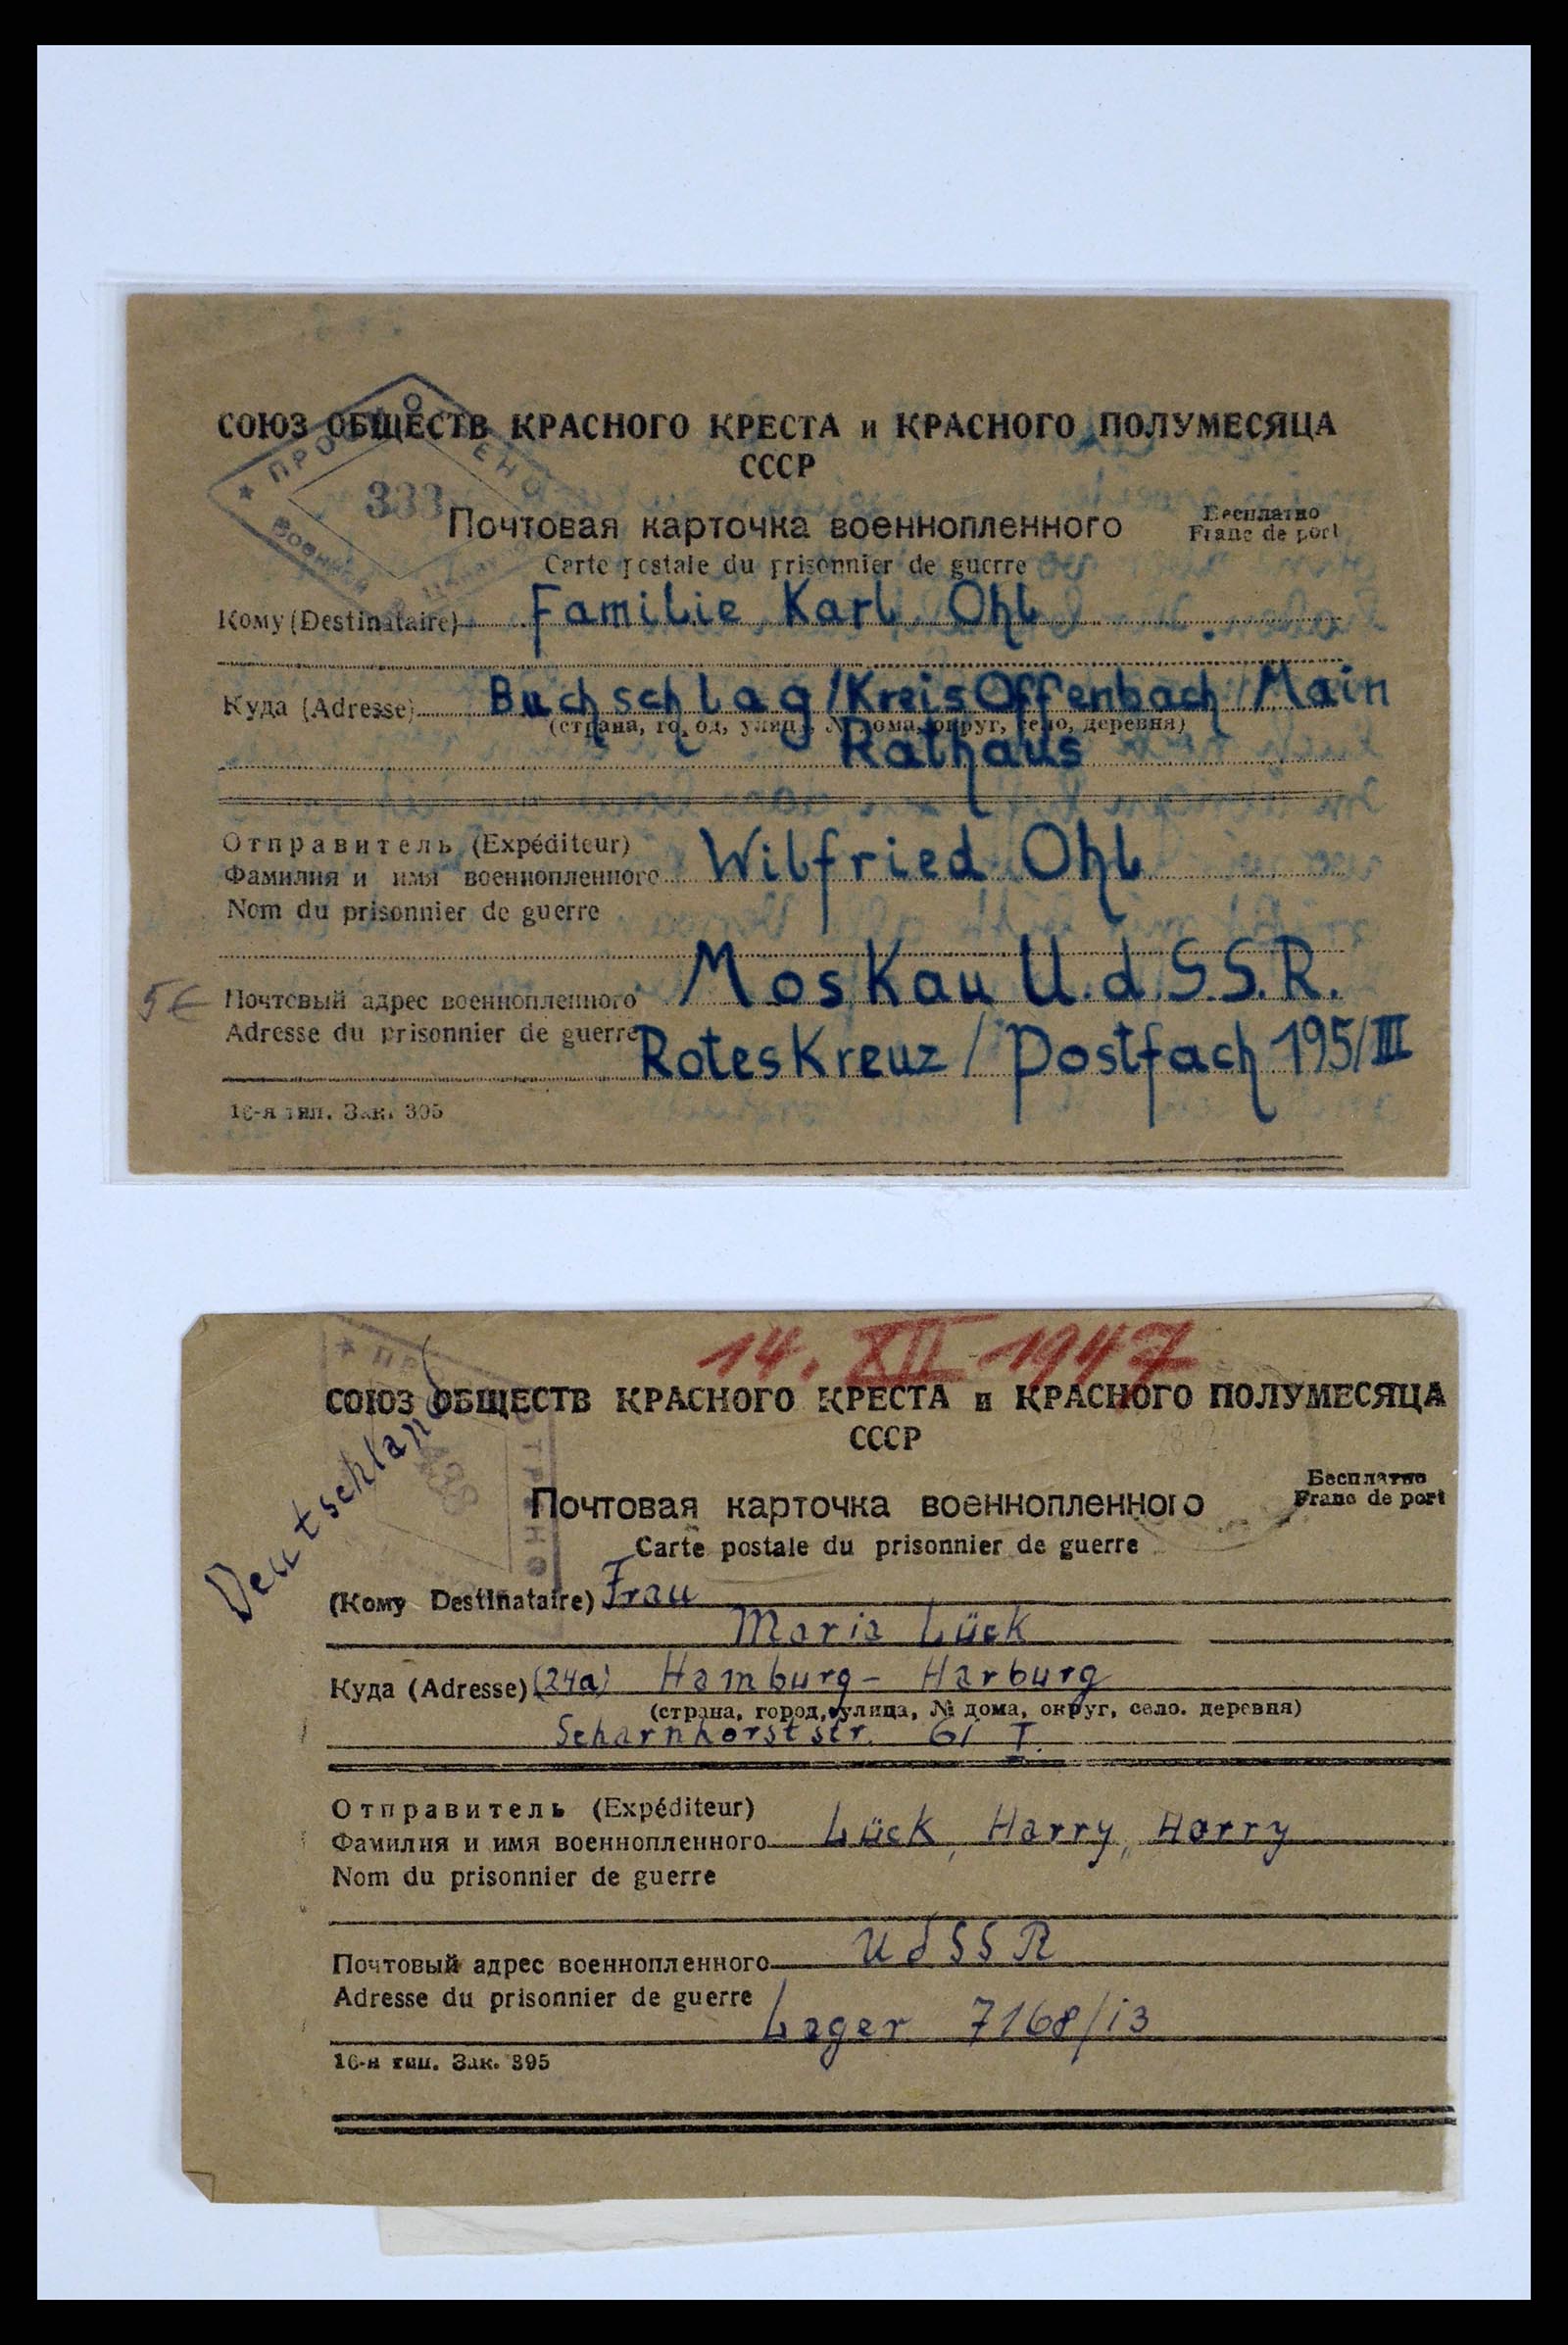 СОЮЗ ОБЩЕСТВ КРАСНОГО КРЕСТА и КРАСНОГО ПОЛУМЕСЯЦА
СССР
333
Почтовая карточка военнопленного
Бесплатно
Franc de port
Carte postale du prisonnier de guerre
Кому (Destinataire) Familie Karl Ohl
Куда (Adresse) Buchschlag/Kreis Offenbach/Main
(страна, город, улица, № дома, округ, село, деревня)
Rathaus
Отправитель (Expéditeur)
Фамилия и имя военнопленного Wilfried Ohl
Nom du prisonnier de guerre
5€
Почтовый адрес военнопленного Moskau U.d.S.S.R.
Adresse du prisonnier de guerre Rotes Kreuz / Postfach 195/III
16-я тип. Зак. 395
14. XII 1947
СОЮЗ ОБЩЕСТВ КРАСНОГО КРЕСТА и КРАСНОГО ПОЛУМЕСЯЦА
СССР
Deutschland
Почтовая карточка военнопленного
Бесплатно
Franc de port
Carte postale du prisonnier de guerre
(Кому Destinataire) Frau
Maria Lück
Куда (Adresse) (24a) Hamburg-Harburg
(страна, город, улица, № дома, округ, село. деревня)
Scharnhorststr. 61 I.
Отправитель (Expéditeur)
Фамилия и имя военнопленного Lück, Harry, Harry
Nom du prisonnier de guerre
Почтовый адрес военнопленного UdSSR
Adresse du prisonnier de guerre
Lager 7168/13
16-я тип. Зак. 395